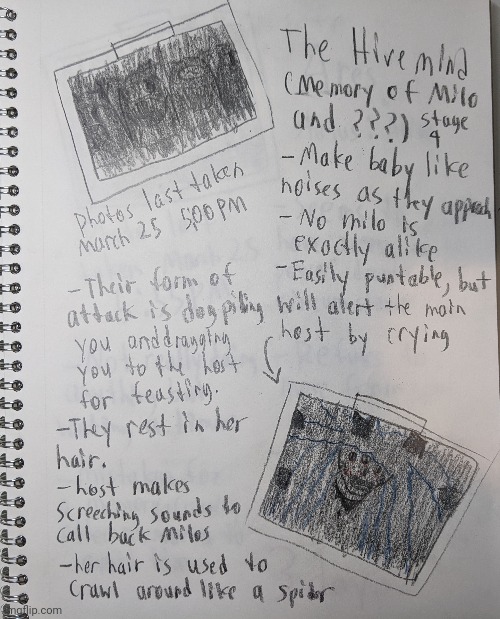 The Hivemind
(Memory of Milo
and ???) stage
4
- Make baby like
noises as they approch
- No milo is
exactly alike
- Easily puntable, but
will alert the main
host by crying
photos last taken
march 25 500 PM
- Their form of
attack is dogpiling
you and dragging
you to the host
for feasting.
- They rest in her
hair.
- host makes
Screeching sounds to
call back milos
- her hair is used to
crawl around like a spider
imgflip.com